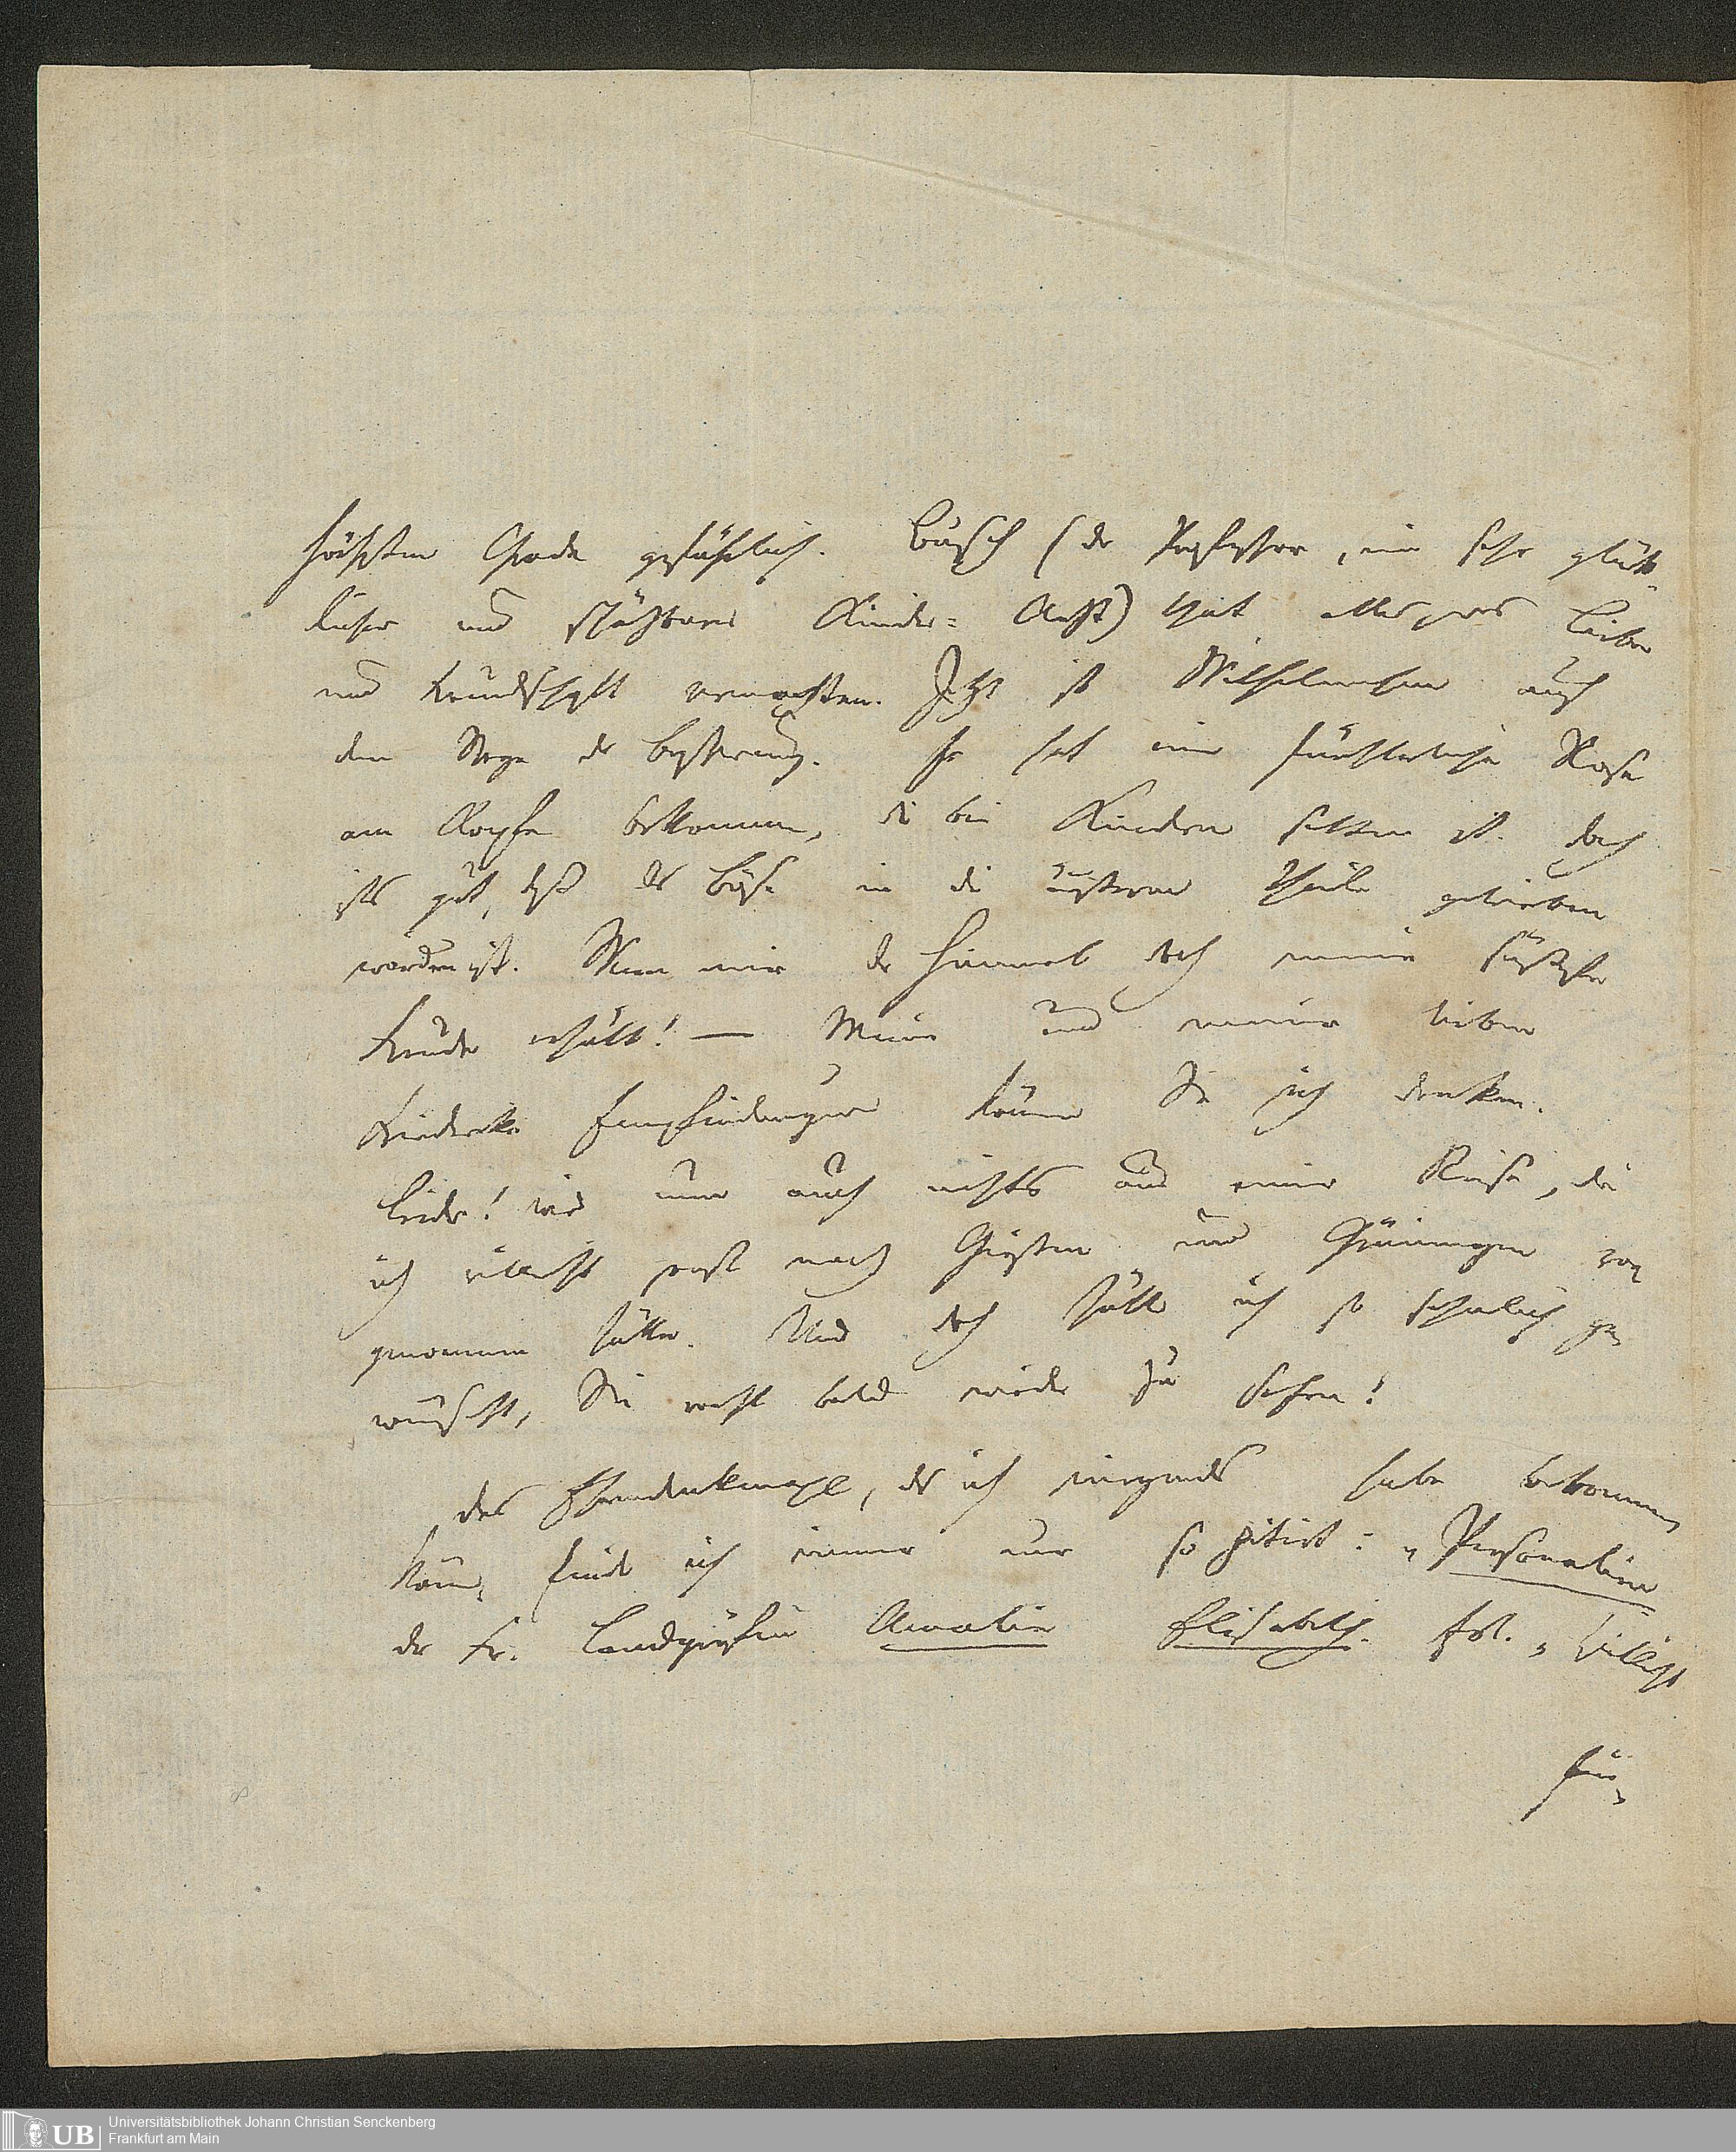 höchsten Grade gefährlich. Busch (der Professor, ein sehr glük-
licher und schäzbarer Kinder= Arzt) that alles was Liebe
und Freundschaft vermochten. Jetzt ist Wilhelmchen auf
dem Wege der Besserung. Er hat eine fürchterliche Rose
am Kopfe bekommen, die bei Kindern selten ist. doch
ists gut, daß das Böse in die äussern Theile getrieben
worden ist. Wenn mir der Himmel doch meine süssesten
Freude erhält! — Meine und meiner lieben
Friederike Empfindungen können Sie sich denken.
Leider! wird nun auch nichts aus einer Reise, die
ich vielleicht sonst nach Giessen und Grüningen vor-
genommen hätte. Und doch hätte ich so sehnlich ge-
wünscht, Sie recht bald wieder zu sehen!
das Ehrendenkmahl, das ich nirgends habe bekommen
können, finde ich immer nur so zitirt: „Personalien
der Fr. Landgräfin Amalie Elisabeth. fol. „ Vielleicht
für
Universitätsbibliothek Johann Christian Senckenberg
UB Frankfurt am Main